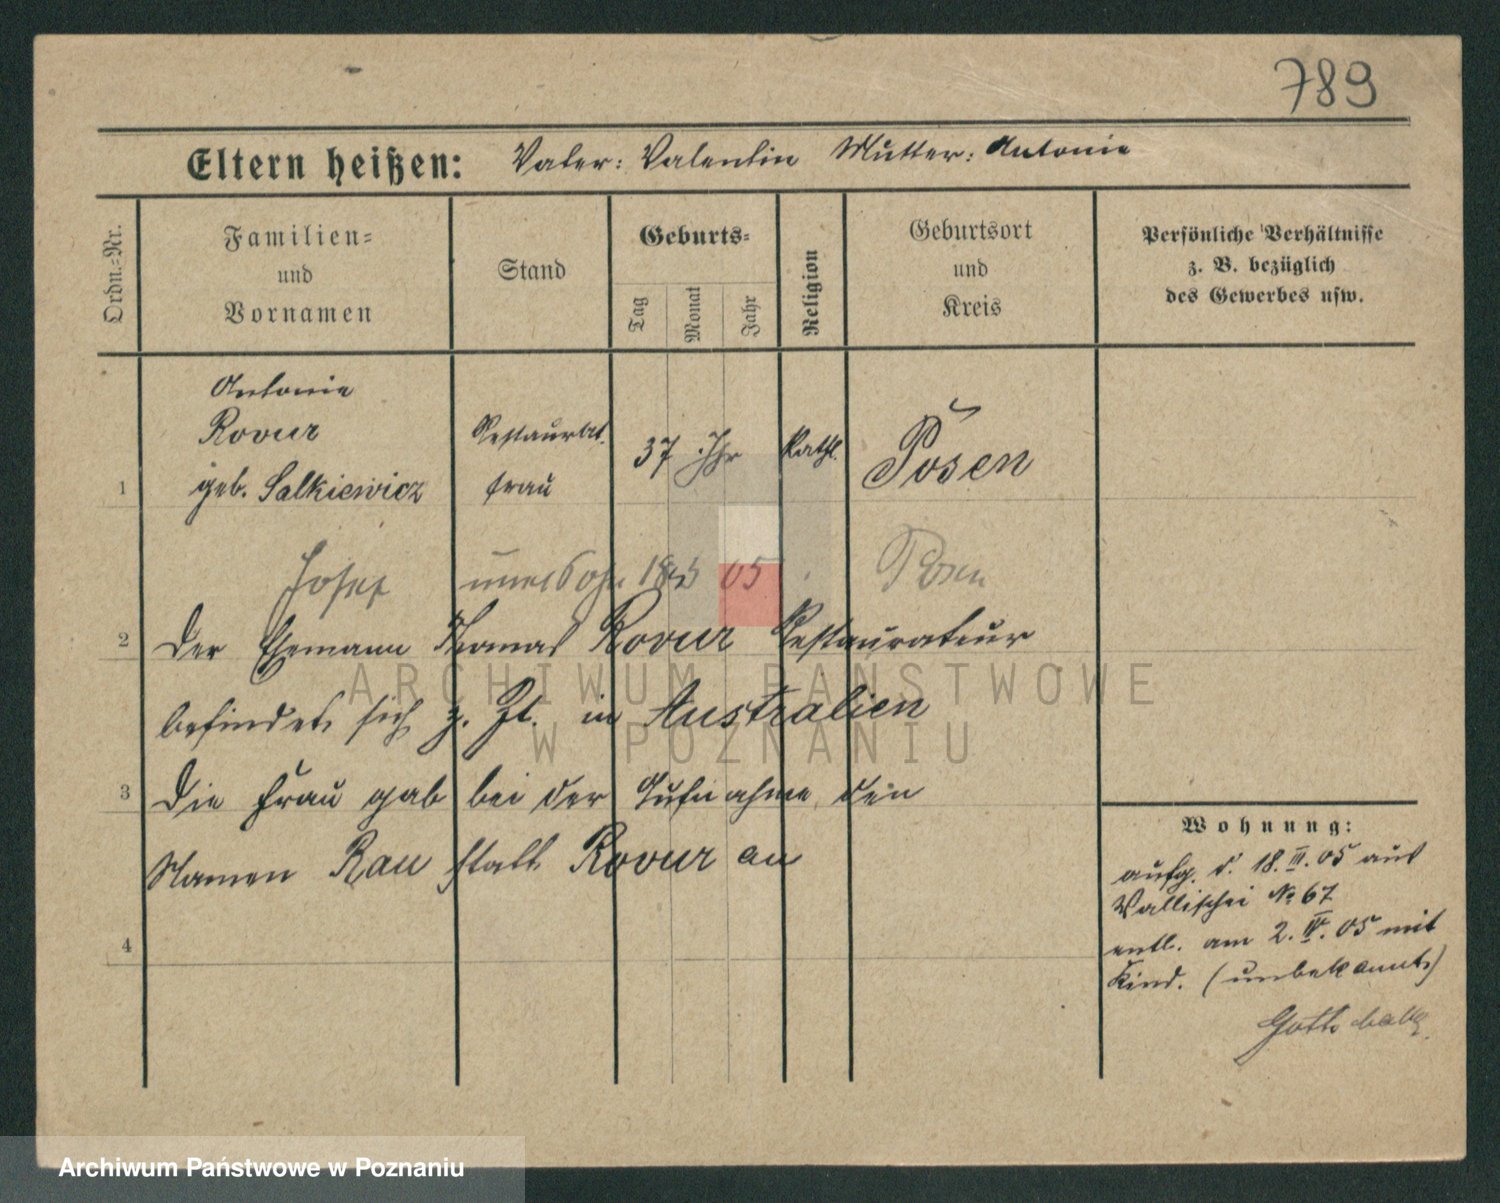 789
Eltern heißen: Vater: Valentin Mutter: Antonie
Ordn.-Nr.
Familien-
und
Vornamen
Stand
Geburts-
Tag
Monat
Jahr
Religion
Geburtsort
und
Kreis
Persönliche Verhältnisse
z. B. bezüglich
des Gewerbes usw.
Antonie
Rovur
geb. Salkiewicz
Restaurat.
frau
37 Jhr
Kathl.
Posen
1
Josef 05 Posen
2
Der Ehemann Thomas Rovur Restaurateur
befindet sich z. Zt. in Australien
3
Die Frau gab bei der Aufnahme den
Namen Rau statt Rovur an
4
Wohnung:
aufg. d. 18. III. 05 aus
Wallischei No 67
entl. am 2. IV. 05 mit
Kind. (unbekannt)
ARCHIWUM PAŃSTWOWE
W POZNANIU
Archiwum Państwowe w Poznaniu